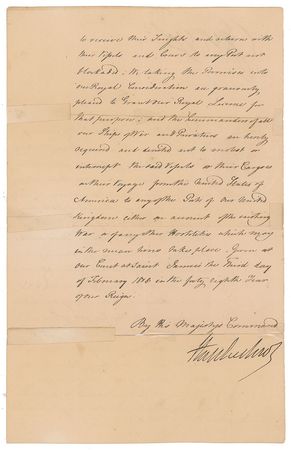 to receive their Freights and return with
their Vessels and Cargoes to any Port not
blockaded. We taking the Premises into
our Royal Consideration are graciously
pleased to Grant our Royal License for
that purpose; and the Commanders of all
our Ships of War and Privateers are hereby
required and directed not to molest or
interrupt the said Vessels or their Cargoes
on their Voyage from the United States of
America to any of the Ports of Our United
Kingdom either on account of the existing
War or of any other Hostilities which may
in the mean time take place. Given at
our Court at Saint James's the Third day
of February in the forty eighth Year
of our Reign.
By His Majesty's Command